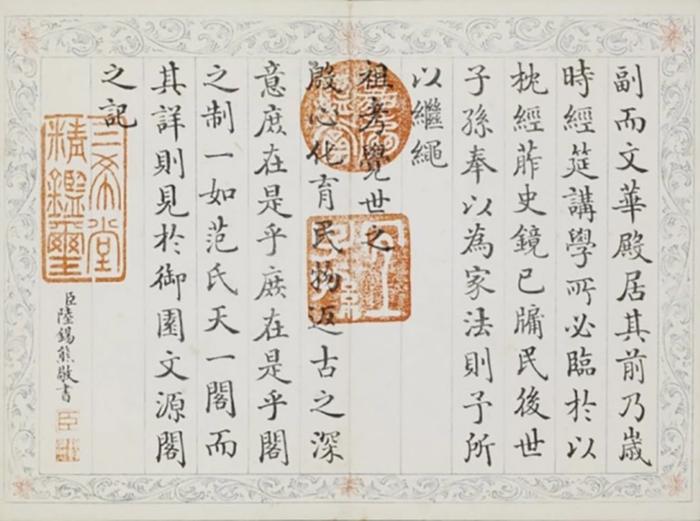 副而文華殿居其前乃歲
時經筵講學所必臨於以
枕經葄史鏡已牖民後世
子孫奉以為家法則予所
以繼繩
祖考覺世之
殷心化育民物返古之深
意庶在是乎庶在是乎閣
之制一如范氏天一閣而
其詳則見於御園文源閣
之記
臣陸錫熊敬書
宜子孫
三希堂
精鑑璽